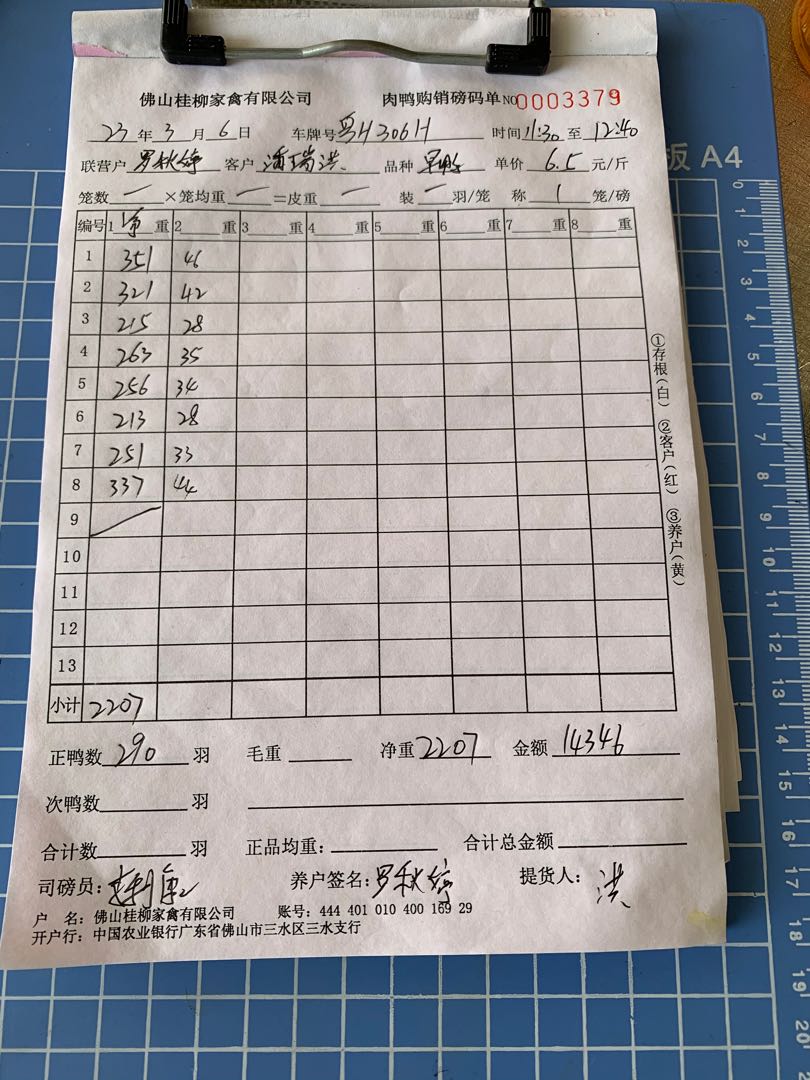 佛山桂柳家禽有限公司 肉鸭购销磅码单 NO 0003379
23年3月6日 车牌号 粤H306H 时间 11:30 至 12:40
联营户 罗秋婷 客户 潘瑞洪 品种 单价 6.5 元/斤
笼数 一 ×笼均重 一 =皮重 一 装 一 羽/笼 称 1 笼/磅
编号 1 净 重 2 重 3 重 4 重 5 重 6 重 7 重 8 重
1 351 46
2 321 42
3 215 28
4 263 35
5 256 34
6 213 28
7 251 33
8 337 44
9
10
11
12
13
小计 2207
正鸭数 290 羽 毛重 净重 2207 金额 14346
次鸭数 羽
合计数 羽 正品均重: 合计总金额
司磅员: 养户签名: 罗秋婷 提货人: 洪
户 名: 佛山桂柳家禽有限公司 账号: 444 401 010 400 169 29
开户行: 中国农业银行广东省佛山市三水区三水支行
①存根(白) ②客户(红) ③养户(黄)
板 A4
0 1 2 3 4 5 6 7 8 9 10 11 12 13 14 15 16 17 18 19 20